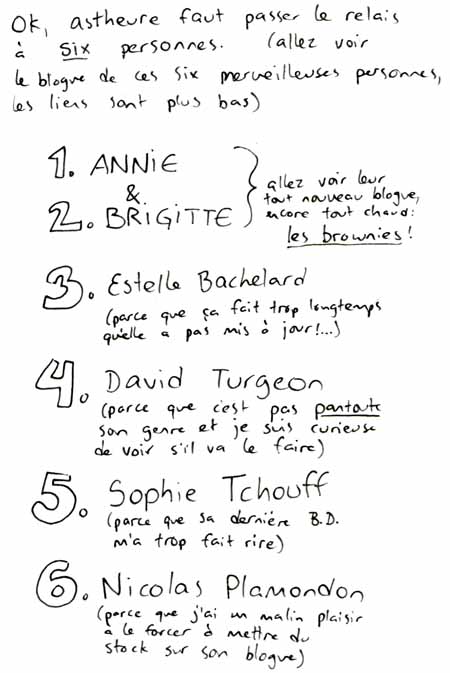 OK, astheure faut passer le relais
à six personnes. (allez voir
le blogue de ces six merveilleuses personnes,
les liens sont plus bas)
1. ANNIE
&
2. BRIGITTE
allez voir leur
tout nouveau blogue,
encore tout chaud:
les brownies!
3. Estelle Bachelard
(parce que ça fait trop longtemps
qu'elle a pas mis à jour!...)
4. David Turgeon
(parce que c'est pas pantoute
son genre et je suis curieuse
de voir s'il va le faire)
5. Sophie Tchouff
(parce que sa dernière B.D.
m'a trop fait rire)
6. Nicolas Plamondon
(parce que j'ai un malin plaisir
à le forcer à mettre du
stock sur son blogue)